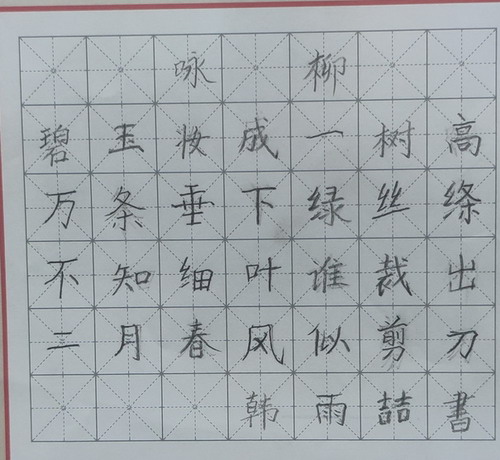 咏柳
碧玉妆成一树高
万条垂下绿丝绦
不知细叶谁裁出
二月春风似剪刀
韩雨喆書